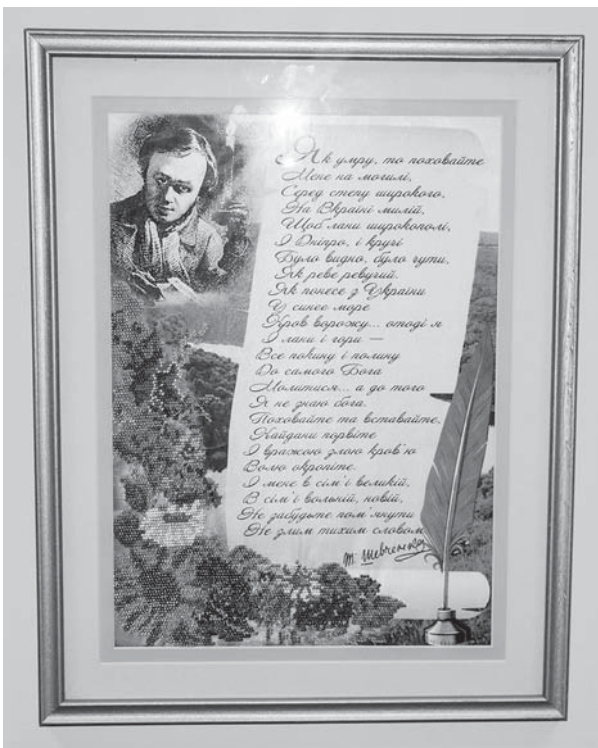 Як умру, то поховайте
Мене на могилі,
Серед степу широкого,
На Вкраїні милій,
Щоб лани широкополі,
І Дніпро, і кручі
Було видно, було чути,
Як реве ревучий.
Як понесе з України
У синєє море
Кров ворожу... отоді я
І лани і гори —
Все покину і полину
До самого Бога
Молитися... а до того
Я не знаю бога.
Поховайте та вставайте,
Кайдани порвіте
І вражою злою кров'ю
Волю окропіте.
І мене в сім'ї великій,
В сім'ї вольній, новій,
Не забудьте пом'янути
Не злим тихим словом
Т. Шевченко